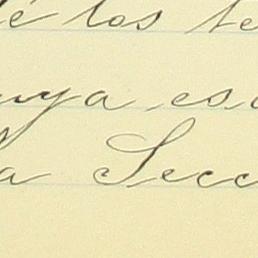 de los te
uya es
a Secc